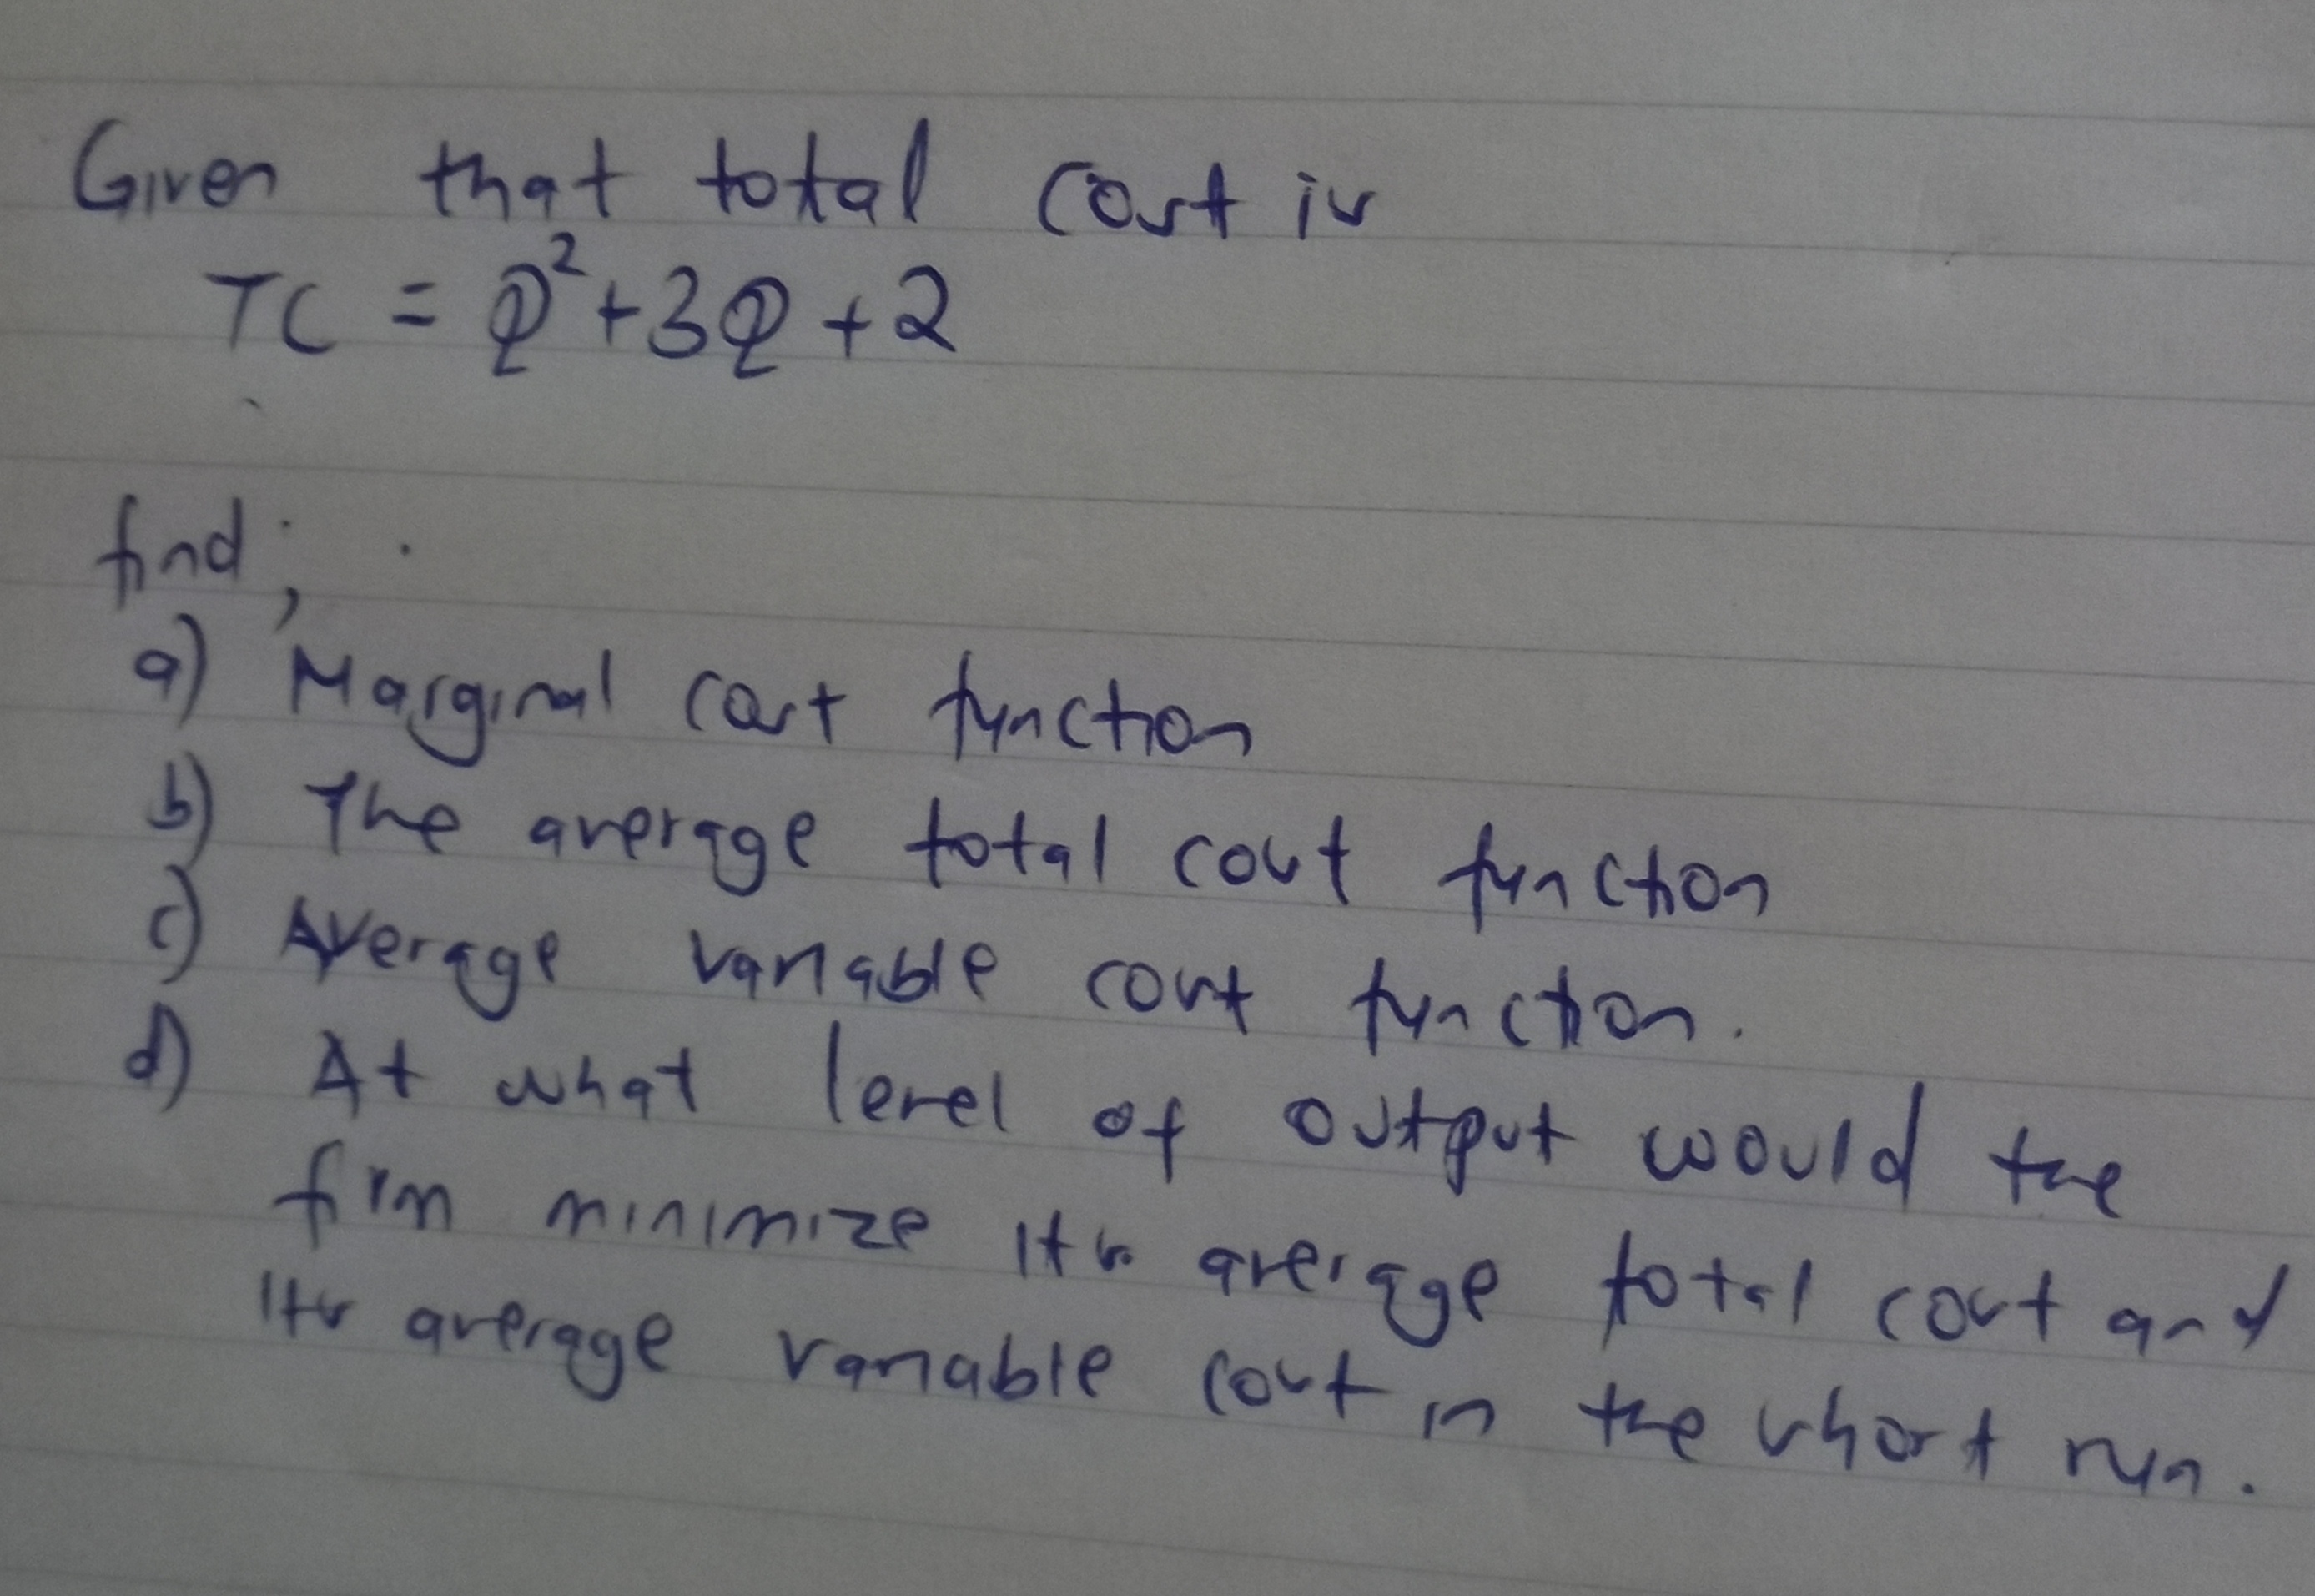 Given that total cost is
TC = Q² + 3Q + 2
find;
a) Marginal cost function
b) The average total cost function
c) Average variable cost function.
d) At what level of output would the
firm minimize its average total cost and
its average variable cost in the short run.